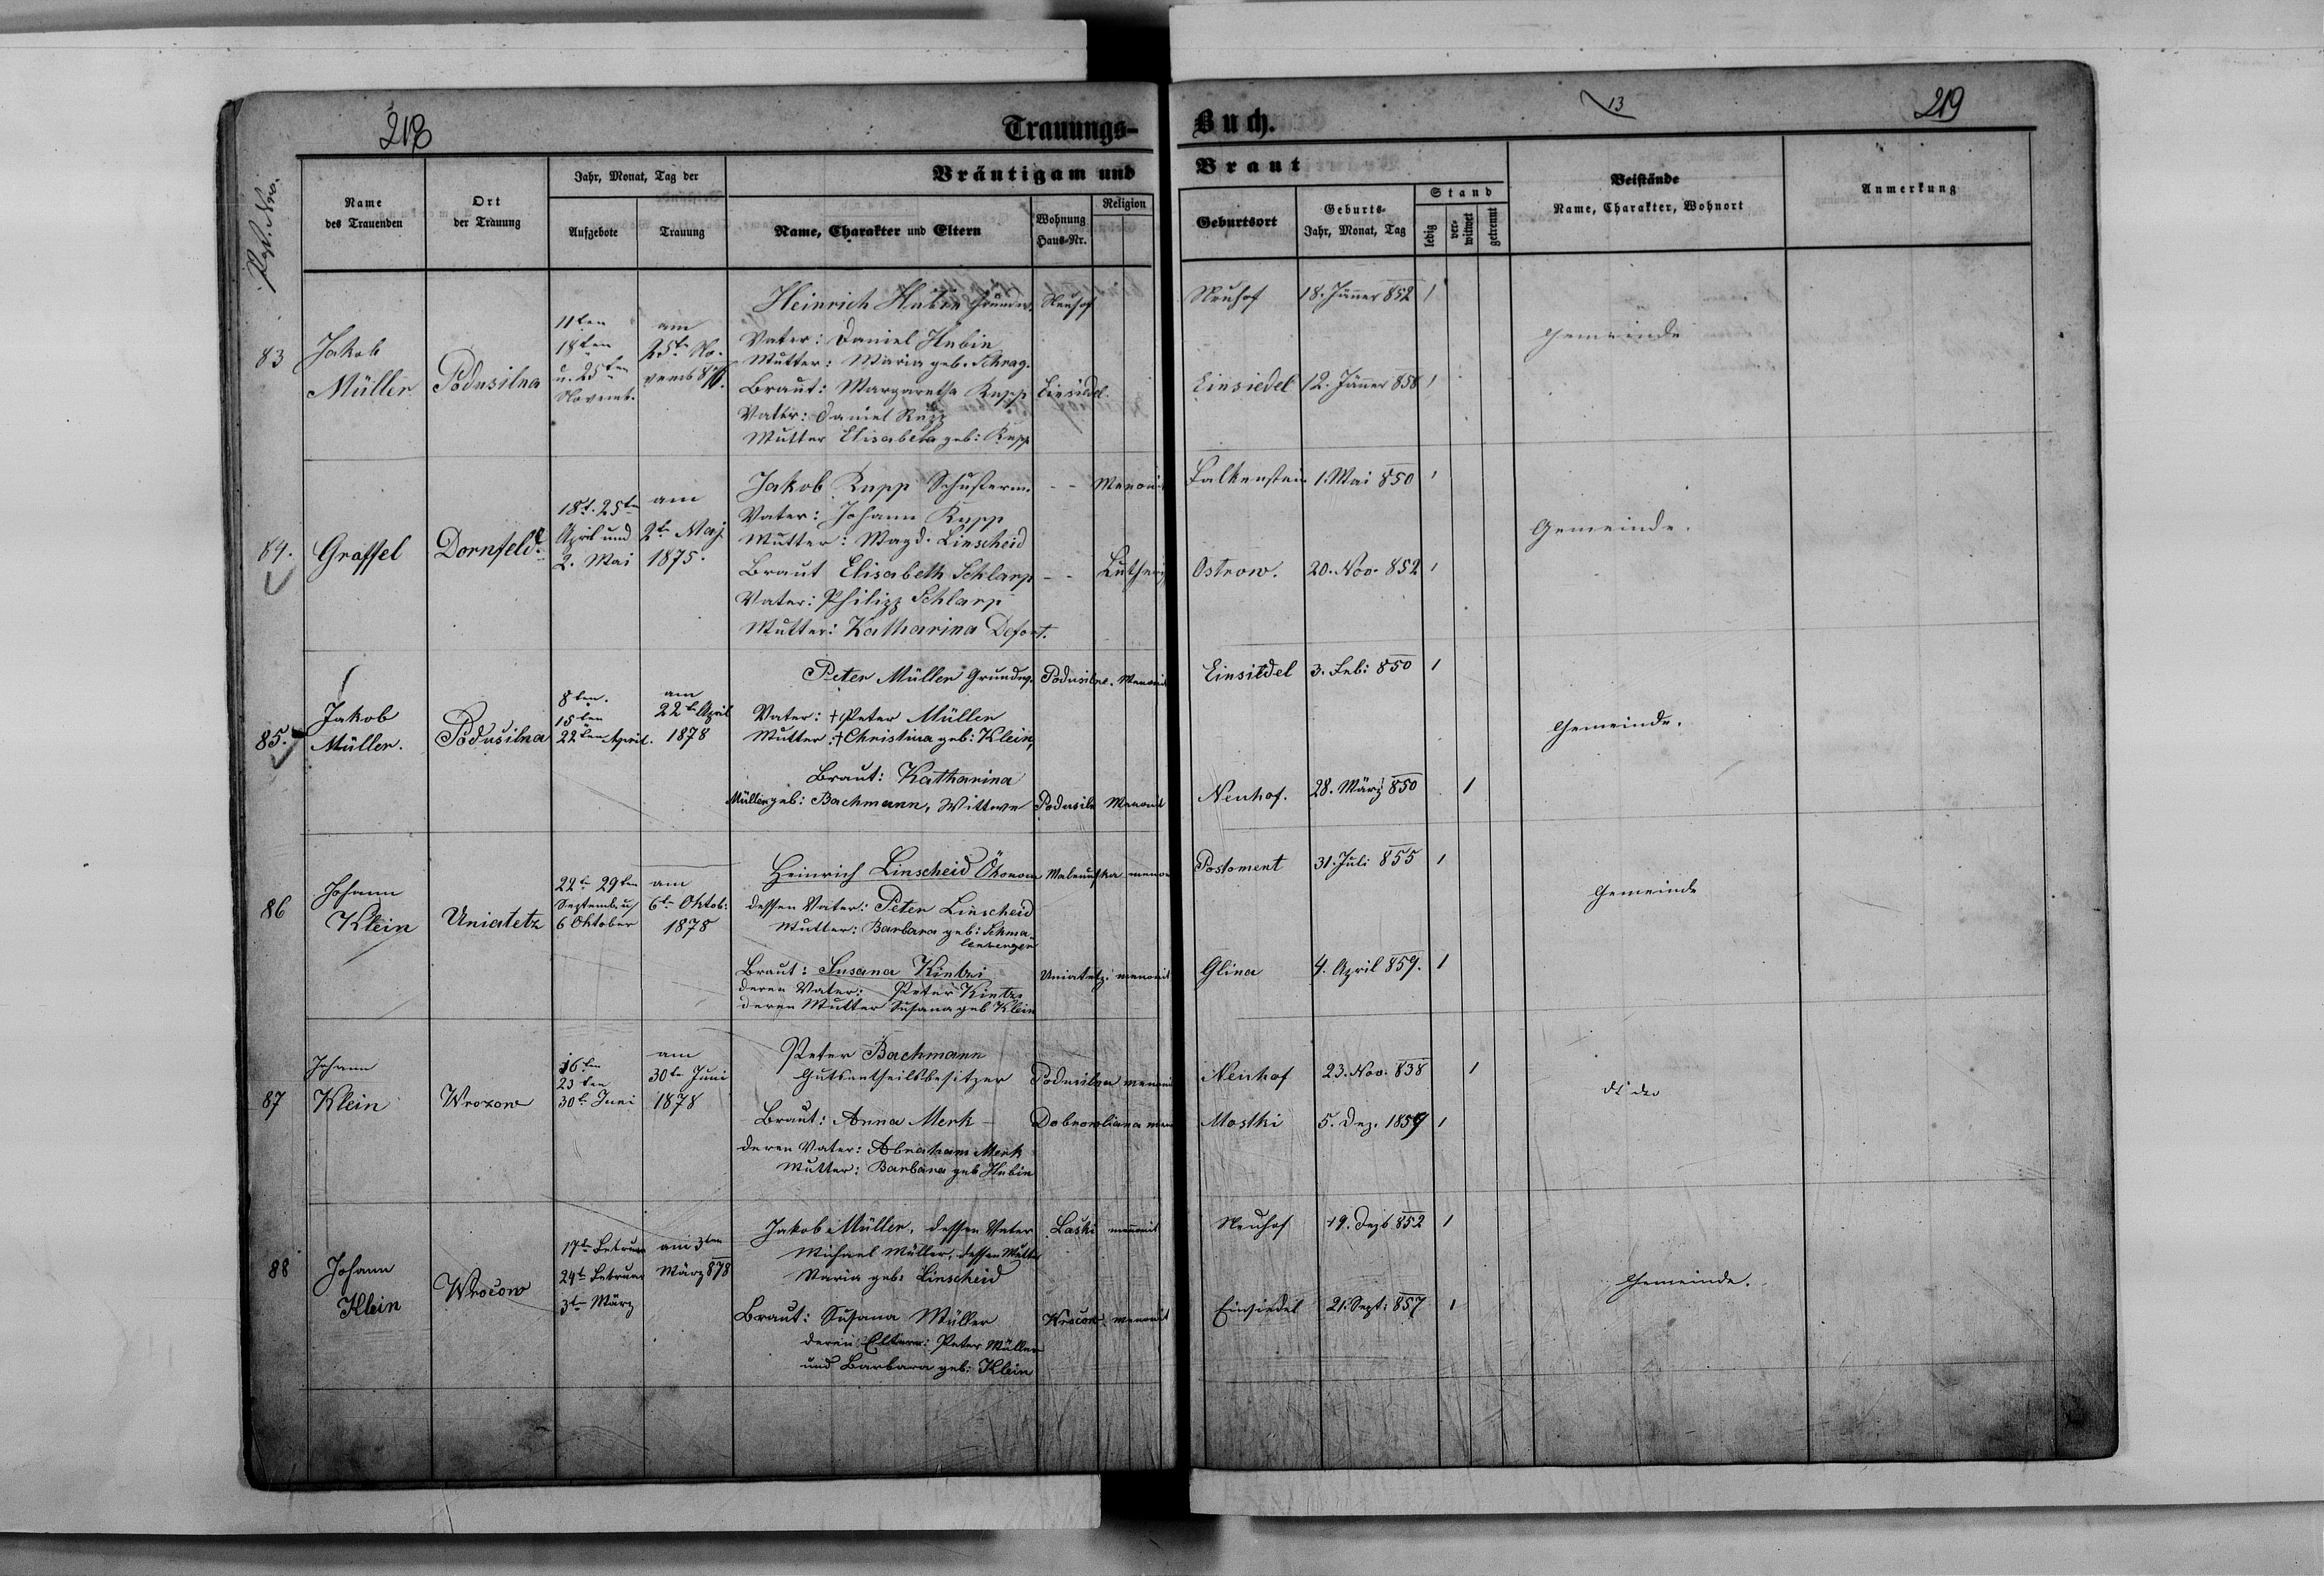 218
Trauungs-
Buch.
13
219
Name
des Trauenden
Ort
der Trauung
Jahr, Monat, Tag der
Aufgebote
Trauung
Bräutigam und
Braut
Name, Charakter und Eltern
Wohnung
Haus-Nr.
Religion
Geburtsort
Geburts-
Jahr, Monat, Tag
Stand
ledig
ver-
witwet
getrennt
Beistände
Name, Charakter, Wohnort
Anmerkung
83
Jakob
Müller
Podusilna
11ten
18ten
u. 25ten
Novemb.
am
25ten No-
vemb 87
Heinrich Hubin Grundw. Neuhof
Vater: Daniel Hubin
Mutter: Maria geb. Schrag.
Braut: Margaretha Rupp Einsidel.
Vater: Daniel Rupp
Mutter Elisabeta geb: Rupp
Neuhof 18. Jänner 852 1
Einsiedel 12. Jänner 858 1
Gemeinde
84.
Graffel
Dornfeld.
18t. 25ten
April und
2. Mai
am
2ten Maj
1875.
Jakob Rupp Schusterm. - - Menonit
Vater: Johann Rupp
Mutter: Magd. Linscheid
Braut Elisabeth Schlarp - - Luther
Vater: Philipp Schlarp
Mutter: Katharina Defort.
Falkenstein 1. Mai 850 1
Ostrow. 20. Nov. 852 1
Gemeinde.
85.
Jakob
Müller.
Podusilna
8ten.
15ten
22ten April.
am
22ten April
1878
Peter Müller Grundw. Podusilna. Menonit
Vater: + Peter Müller
Mutter: + Christina geb: Klein,
Braut: Katharina
Müller geb: Bachmann, Wittwe Podusiln Menonit
Einsiedel 3. Feb: 850 1
Neuhof. 28. März 850 1
Gemeinde.
86
Johann
Klein
Uniatetz
22ten 29ten
Septemb. u/
6 Oktober
am
6ten Oktob:
1878
Heinrich Linscheid Ökonom Malenuska menon
dessen Vater: Peter Linscheid
Mutter: Barbara geb: Schma-
lenberger
Braut: Susana Kintzi Uniatetz. menonit
deren Vater: Peter Kintzi
deren Mutter Susana geb Klein
Postoment 31. Juli 855 1
Glina 4. April 859. 1
Gemeinde
87
Johann
Klein
Wrozow
16ten
23ten
30t. Juni
am
30ten Juni
1878
Peter Bachmann
Gutsantheilsbesitzer Podusilna menonit
Braut: Anna Merk - Dobrowliana men
deren Vater: Abraham Merk
Mutter: Barbara geb Hubin
Neuhof 23. Nov. 838 1
Mostki 5. Dez. 1859 1
88
Johann
Klein
Wrocow
17ten Februar
24ten Februar
3ten März
am 3ten
März 878
Jakob Müller, dessen Vater Laski menonit
Michael Müller, dessen Mutter
Maria geb: Linscheid
Braut: Susana Müller Wrocow menonit
deren Eltern: Peter Müller
und Barbara geb: Klein
Neuhof 19. Dezb 852 1
Einsiedel 21. Sept: 857 1
Gemeinde.